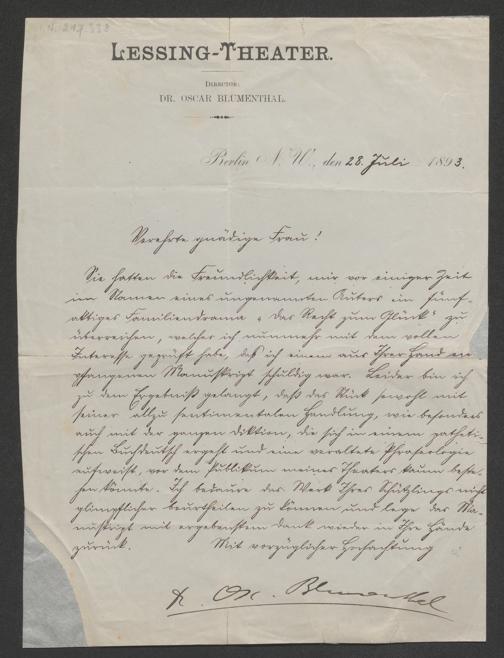 N. 217.338
LESSING-THEATER.
DIRECTOR:
DR. OSCAR BLUMENTHAL.
Berlin N. W., den 28. Juli 1893.
Verehrte gnädige Frau!
Sie hatten die Freundlichkeit, mir vor einiger Zeit
im Namen eines ungenannten Autors ein fünf-
aktiges Familiendrama „Das Recht zum Glück“ zu
überreichen, welches ich nunmehr mit dem vollen
Interesse geprüft habe, daß ich einem aus Ihrer Hand em-
pfangenen Manuskript schuldig war. Leider bin ich
zu dem Ergebniß gelangt, daß das Stück sowohl mit
seiner allzu sentimentalen Handlung, wie besonders
auch mit der ganzen Diktion, die sich in einem patheti-
schen Buchdeutsch ergeht und eine veraltete Phraseologie
aufweist, vor dem Publikum meines Theaters kaum beste-
hen könnte. Ich bedaure das Werk Ihres Schützlings nicht
glimpflicher beurtheilen zu können und lege das Ma-
nuskript mit ergebenstem Dank wieder in Ihre Hände
zurück. Mit vorzüglicher Hochachtung
Dr. Osc. Blumenthal